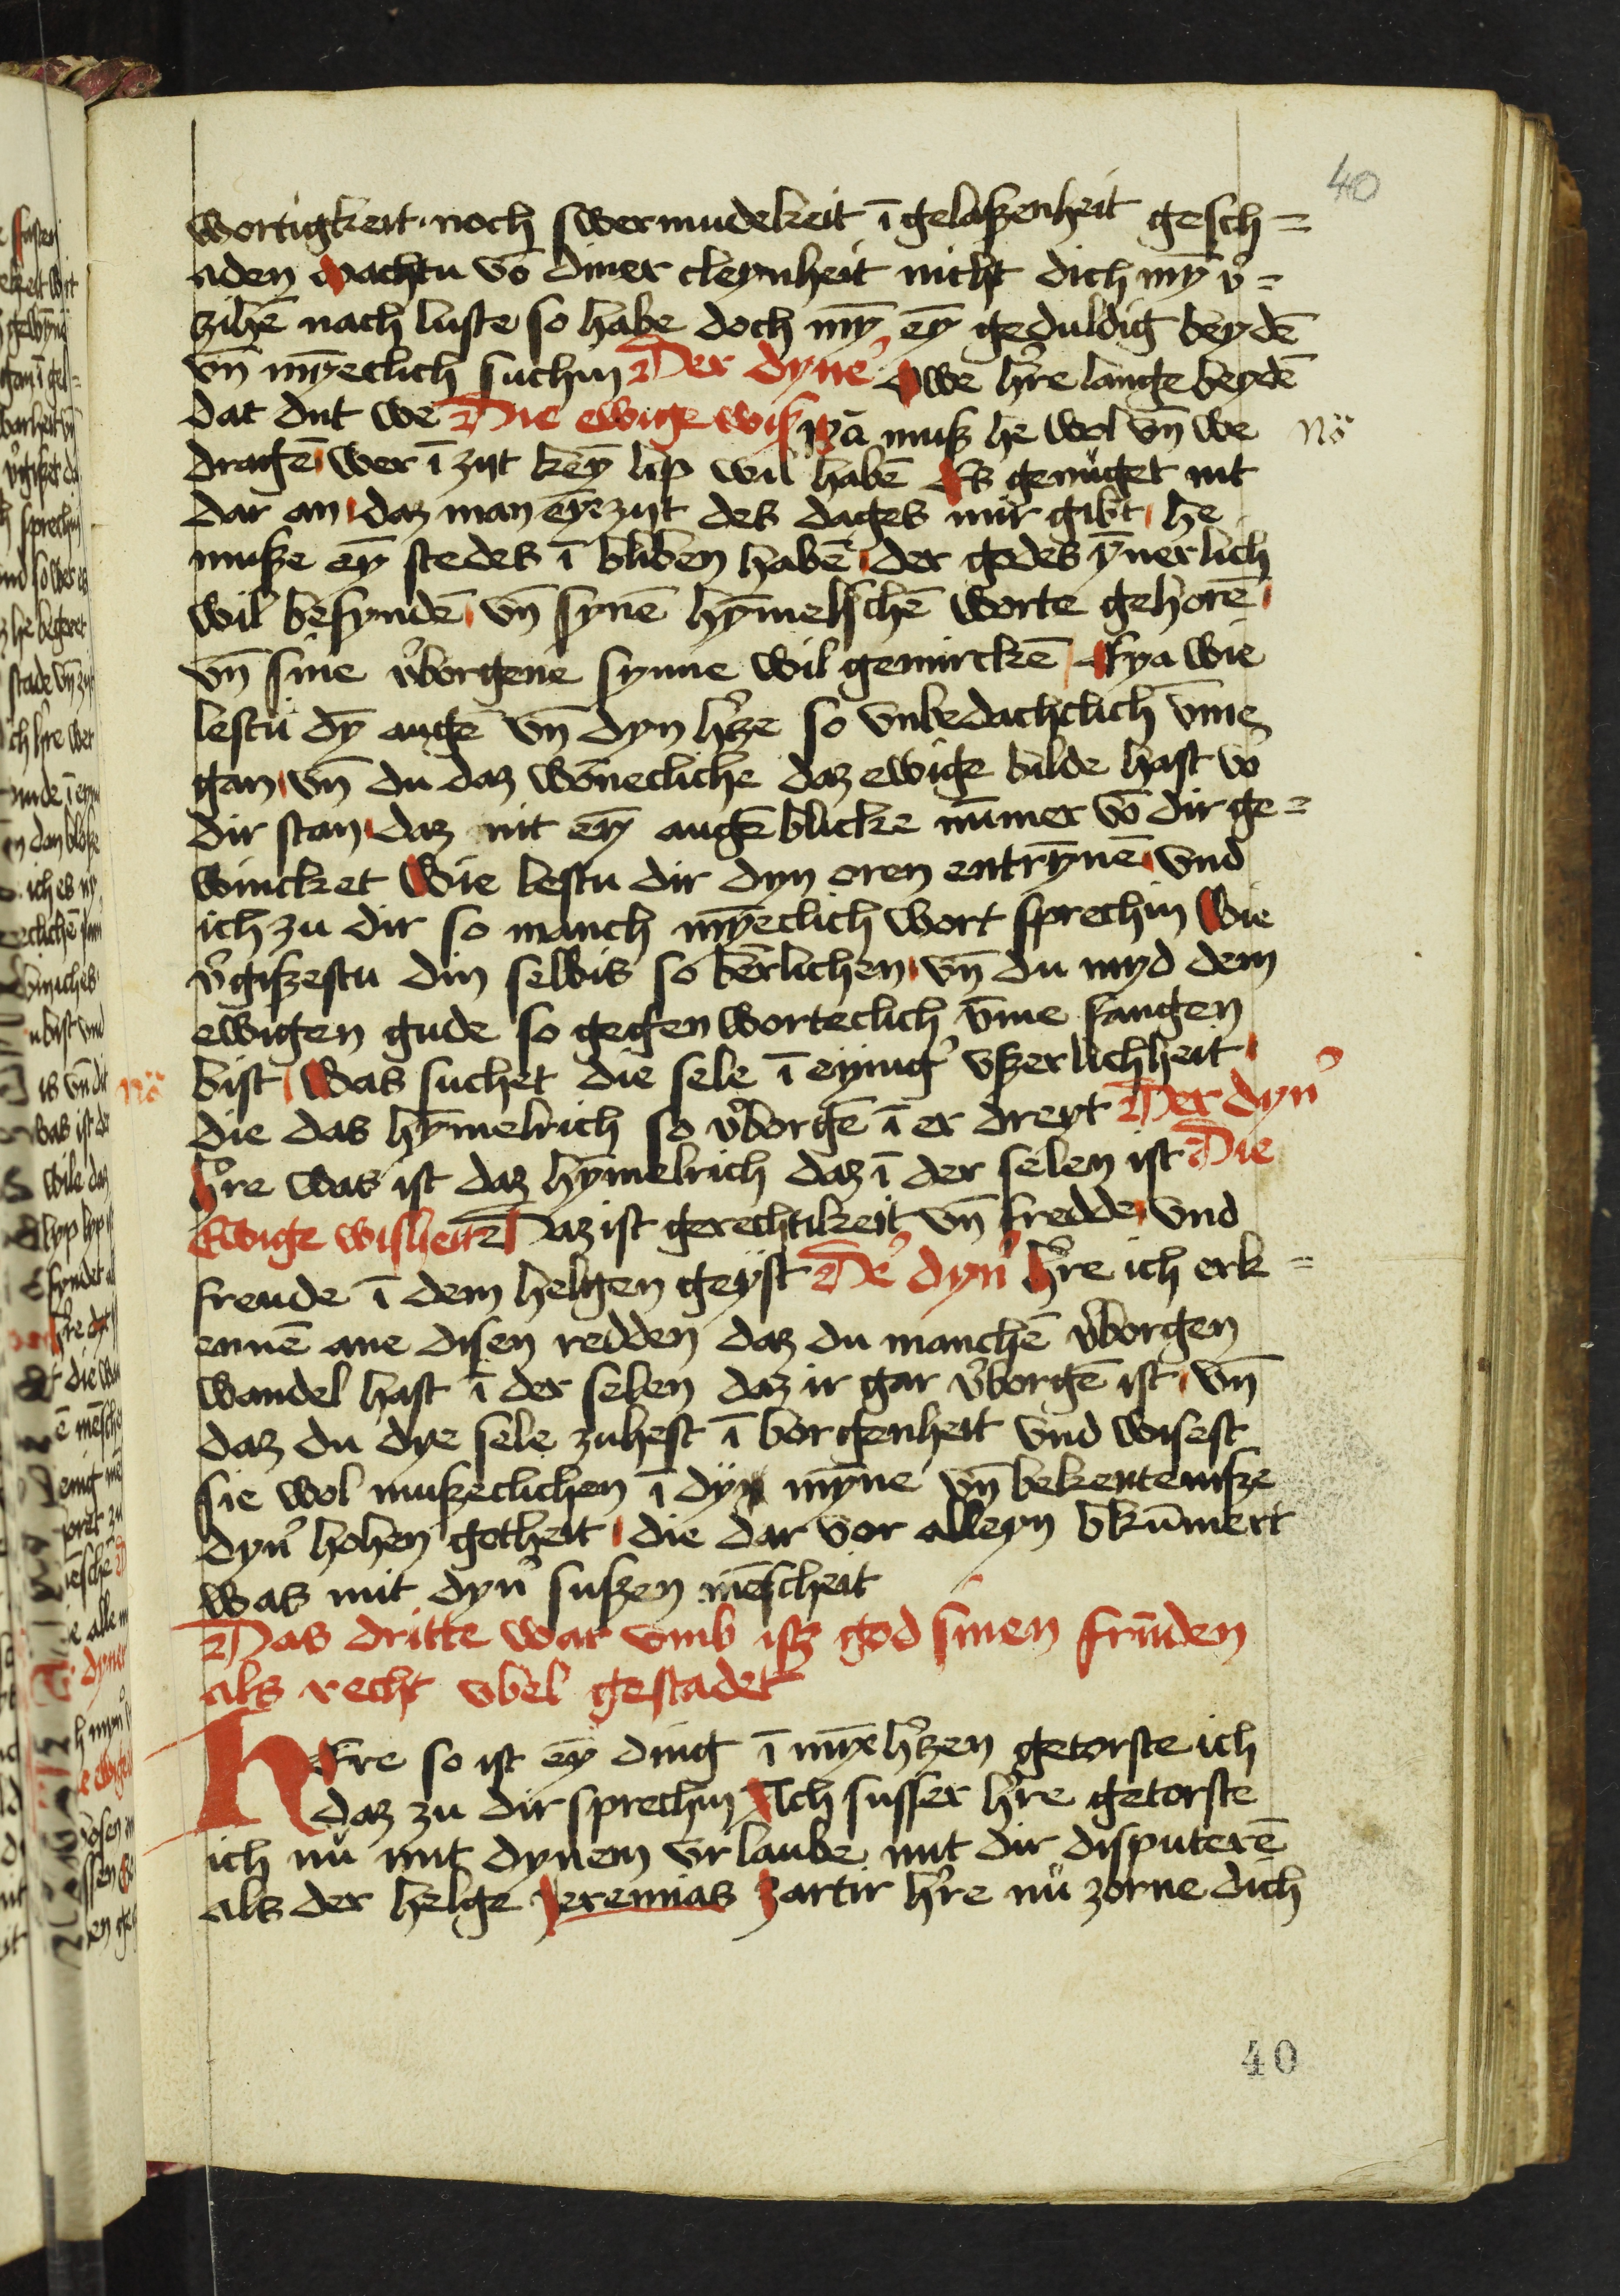 40
wortigkeit · noch swermudekeit ī gelaßenheit gesch=
aden machtu vō diner cleynheit nicht dich mȳ v᷑=
zihē nach luste so habe doch mȳ eȳ geduldig beydē
vn̄ mȳeclich suchin Der dyne᷑ Owe h᷑re lange beydē
dat dut we Die ewige wiß Ja muß he wol vn̄ we
No᷑
dragē wer ī zijt keȳ lip wil habē Es genüget nit
dar an daz man eȳe zijt des dages mir gibt he
muße eȳ stedes ī bliben habē der godes ȳnerlich
wil befyndē vn̄ synē hȳmelschē worte gehorē
vn̄ sine v᷑borgene synne wil gemirckē Eya wie
lestu dȳ auge vn̄ dyn h᷑ze so vnbedachclich v̄me
gan vn̄ du daz wōnecliche daz ewige bilde hast vo᷑
dir stan daz nit eȳ augē blicke nūmer vō dir ge=
wincket Wie lestu dir dyn oren entrȳnē vnd
ich zu dir so manch mȳeclich wort sprechin Wie
v᷑gißestu din selbis so berlichen vn̄ du myd dem
ewigen gude so gegen worteclich v̄me fangen
bist Was suchet die sele ī eynig᷑ vßerlichheit
No᷑
die das hȳmelrich so v᷑borgē ī er dreyt Der dyn᷑
h᷑re was ist daz hȳmelrich daz ī der selen ist Die
Ewige wisheit Daz ist gerechtikeit vn̄ fredde vnd
freude ī dem helgen geyst De᷑ dyn᷑ h᷑re ich erk=
ennē ane disen redden daz du manchē v᷑borgen
wandel hast ī der selen daz ir gar v᷑borgē ist vn̄
daz du dye sele zuhest ī borgenheit vnd wisest
sie wol mußeclichen ī dyn mȳne vn̄ bekenteniße
dyn᷑ hohen gotheit die dar vor alleyn bkūmert
was mit dyn᷑ sußen mēscheit
Das dritte war vmb istz god sinen frūden
als recht vbel gestadet
HEre so ist eȳ ding ī mȳe h᷑zen getorste ich
daz zu dir sprechin Ach susser h᷑re getorste
ich nu mit dynem vrlaube mit dir disputerē
als der helge Jeremias zartir h᷑re nu zorne dich
40